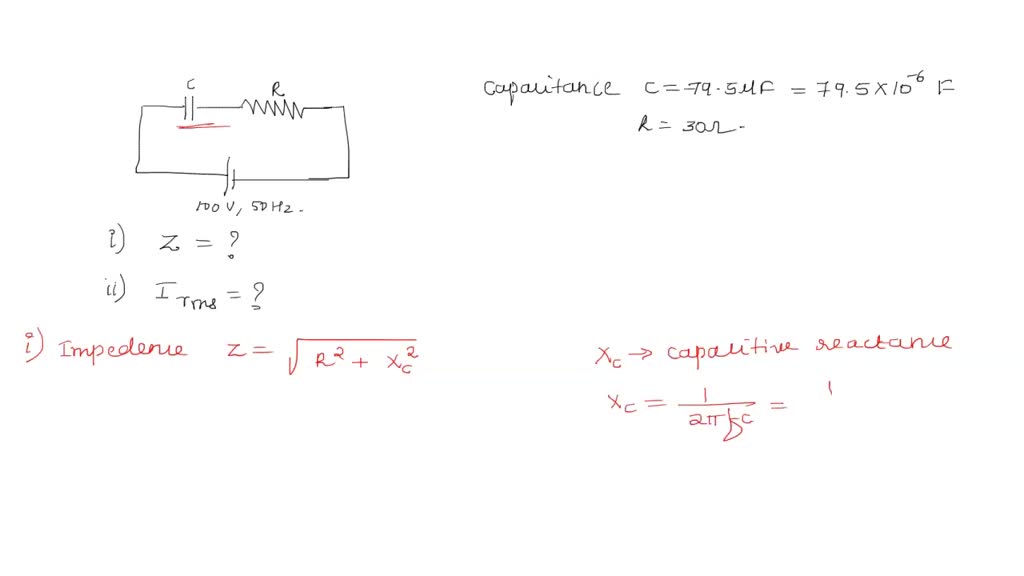 C
R
Capacitance C = 79.5 μF = 79.5 × 10⁻⁶ F
R = 30Ω.
100 V, 50 Hz.
i) Z = ?
ii) Irms = ?
i) Impedence Z = √(R² + Xc²)
Xc → capacitive reactance
Xc = 1/(2πfC) = 1